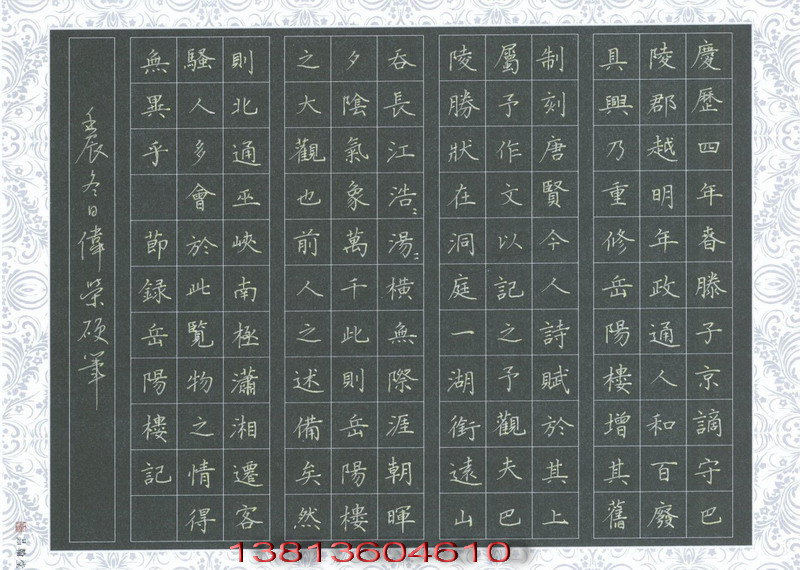 慶歷四年春滕子京謫守巴
陵郡越明年政通人和百廢
具興乃重修岳陽樓增其舊
制刻唐賢今人詩賦於其上
屬予作文以記之予觀夫巴
陵勝狀在洞庭一湖銜遠山
吞長江浩〻湯〻橫無際涯朝暉
夕陰氣象萬千此則岳陽樓
之大觀也前人之述備矣然
則北通巫峽南極瀟湘遷客
騷人多會於此覽物之情得
無異乎 節錄岳陽樓記
壬辰冬日偉榮硬筆
13813604610